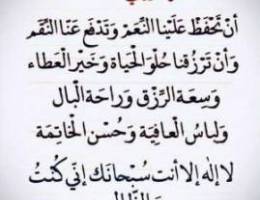 أنْ تَحْفَظْ عَلَيْنا النِّعَمْ وَتَدْفَع عَنَّا النِّقَم
وَانْ تَرْزُقنا حُلوَ الْحَيَاة وَخَيْر الْعَطاء
وَسِعَة الرِّزْق وَرَاحَة الْبال
وَلِباسُ الْعافِيَة وَحُسْن الْخاتِمَة
لا إله إلا أنت سُبْحانَك إنِّي كُنْتُ